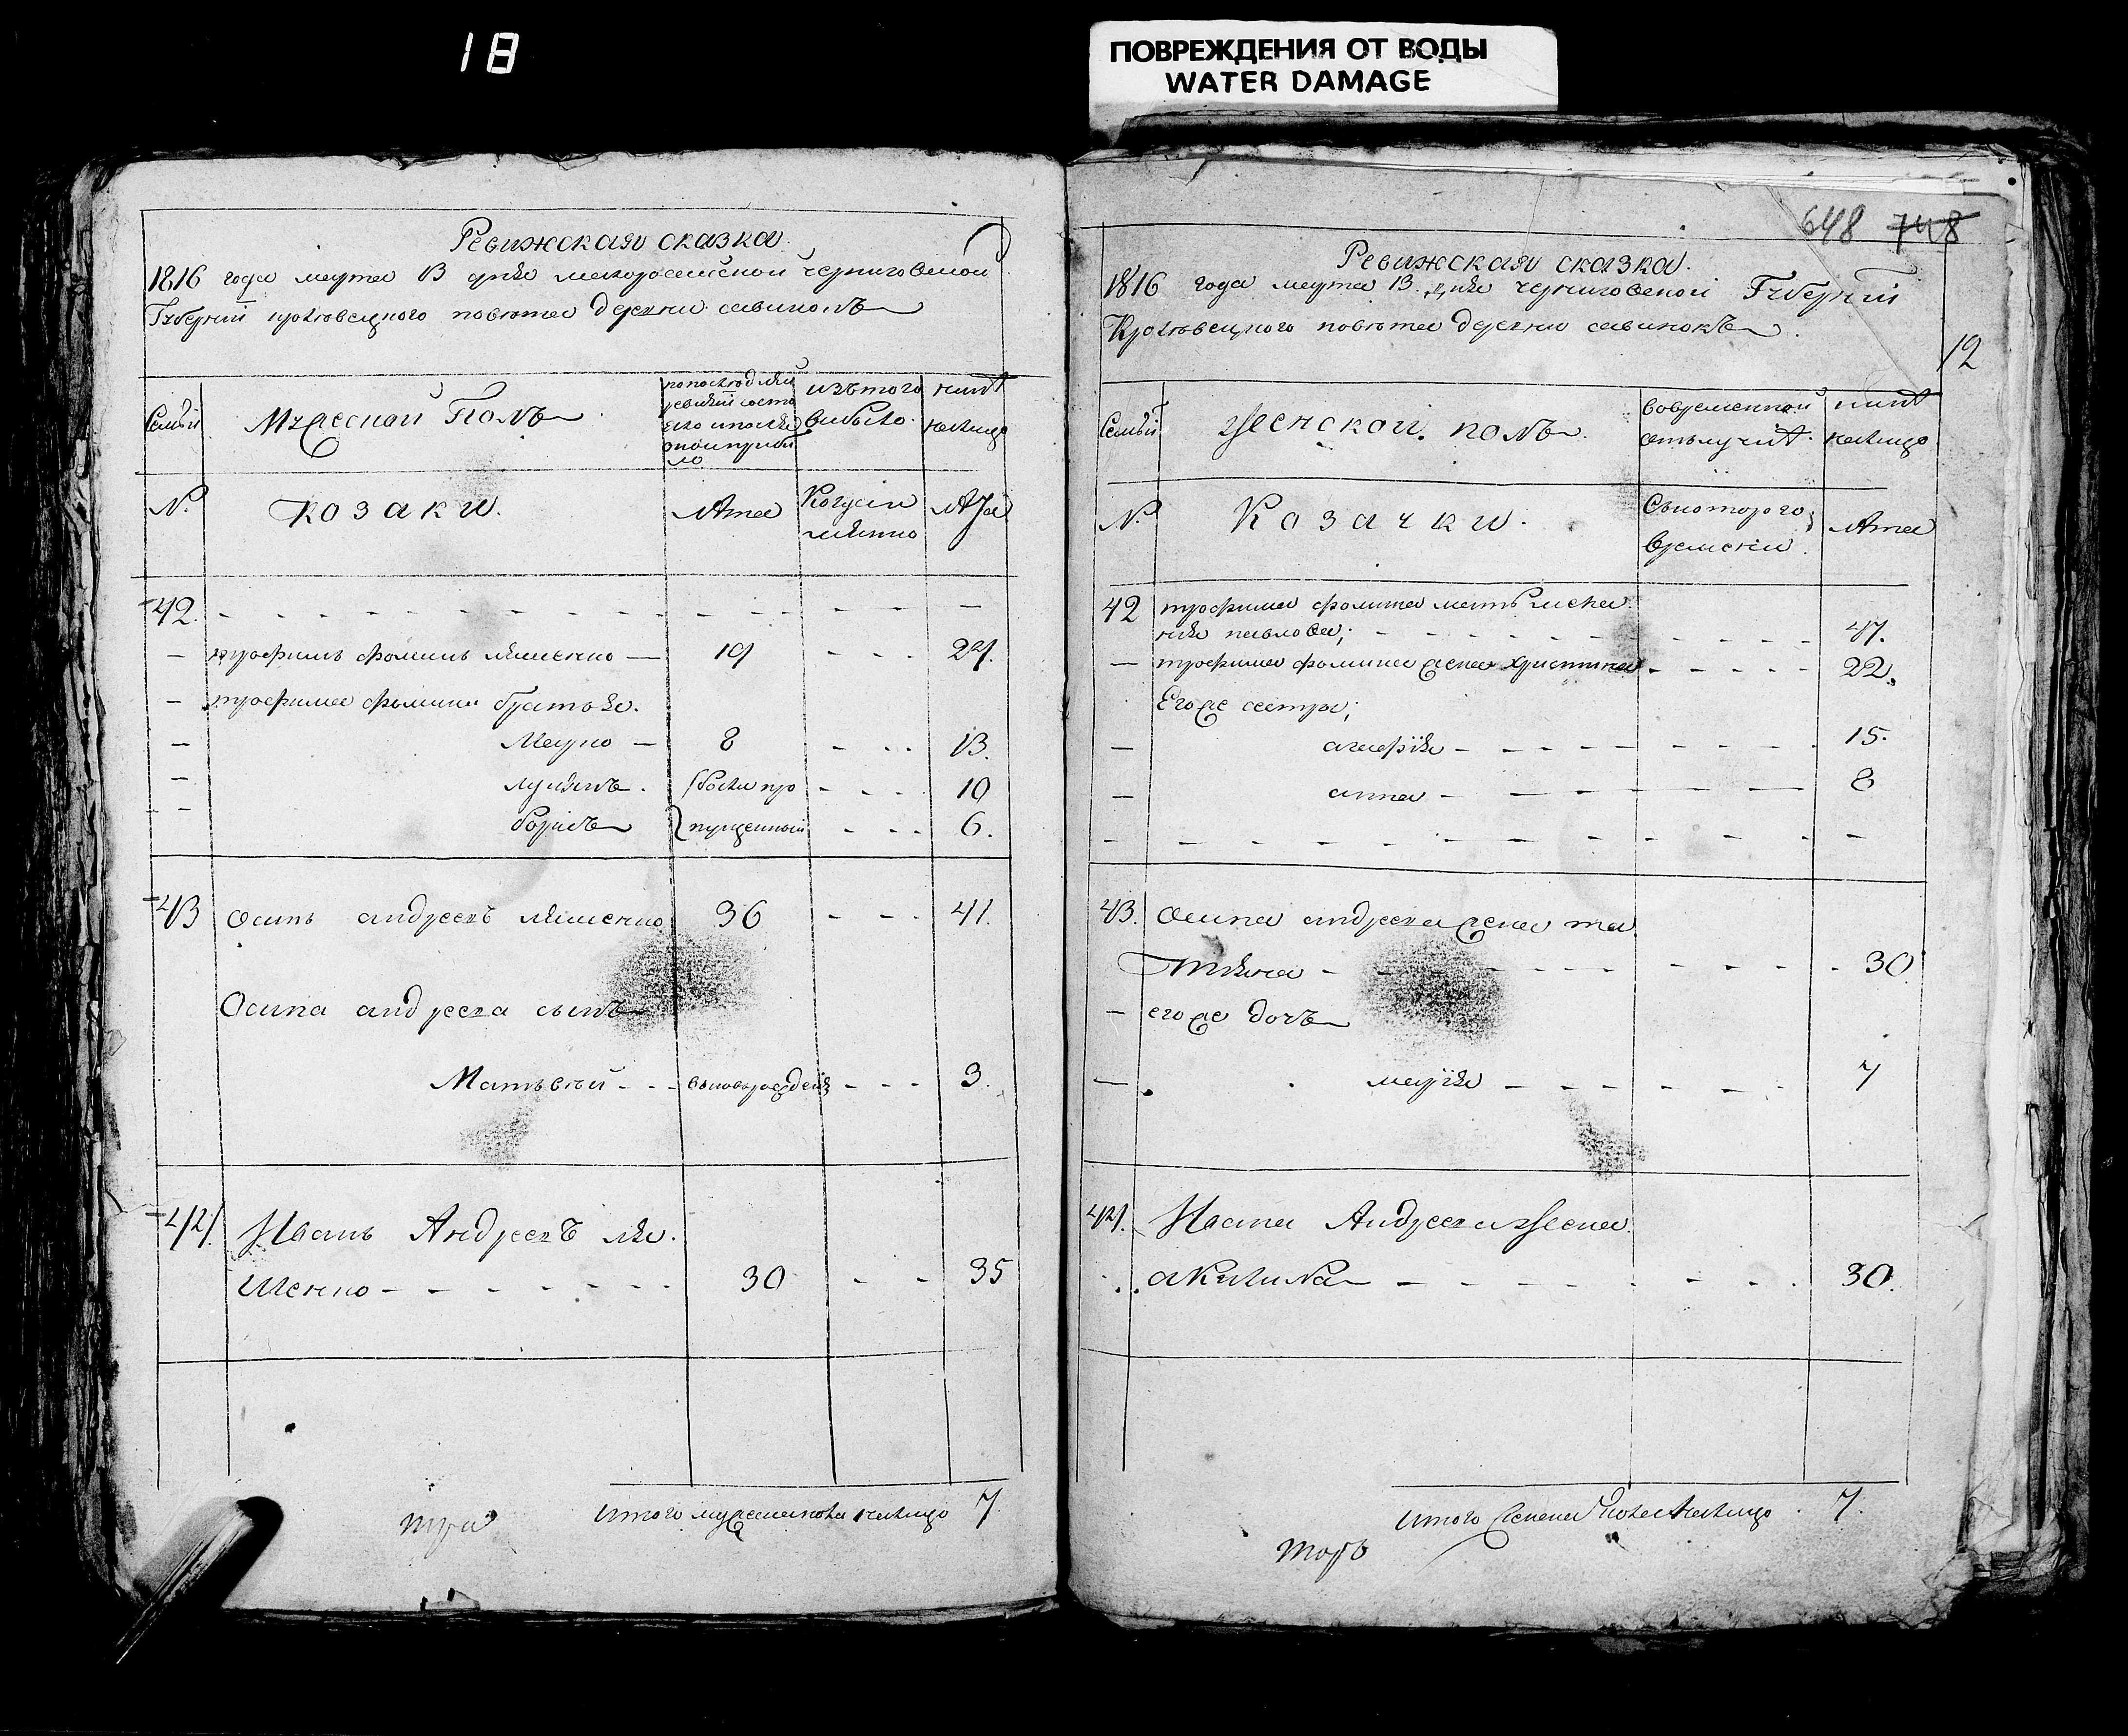 18
ПОВРЕЖДЕНИЯ ОТ ВОДЫ
WATER DAMAGE
Ревижская сказка.
1816 года марта 13 дня малоросейской черниговской
Губернии кролевецкого повета деревни савинокъ
Семьи
Мужеской Полъ
по последней
ревизии состо
яло и после
оной прибы
ло
изъ того
выбыло.
ныне
налицо
№.
козаки.
лета
Когда имянно
лета
42.
трофимъ фоминъ ляшенко 19 24.
трофима фомина братья.
Марко 8 13.
лукянъ. были про 10
борисъ пущенный 6.
43 осипъ андреевъ ляшенко 36 41.
Осипа андреева сынъ
Матьвей новорожденъ 3.
44. Иванъ Андреевъ ля.
шенко 30 35
итого мужеска пола налицо 7.
648 748
12
Ревижская сказка.
1816 года марта 13. дня черниговской Губернии
Кролевецкого повета деревни савинокъ.
Семьи
Женской. полъ.
во временной
отлучке.
ныне
налицо
№.
Козачки.
Съ которого
времени.
лета
42 трофима фомина мать
павлова; 47.
трофима фомина жена христина 22.
Его же сестры;
агафия 15.
анна 8
43. осипа андреева жена та
тияна 30
его же дочь
мария 7
44. Ивана Андреева жена
акилина 30.
итого женска пола налицо 7.